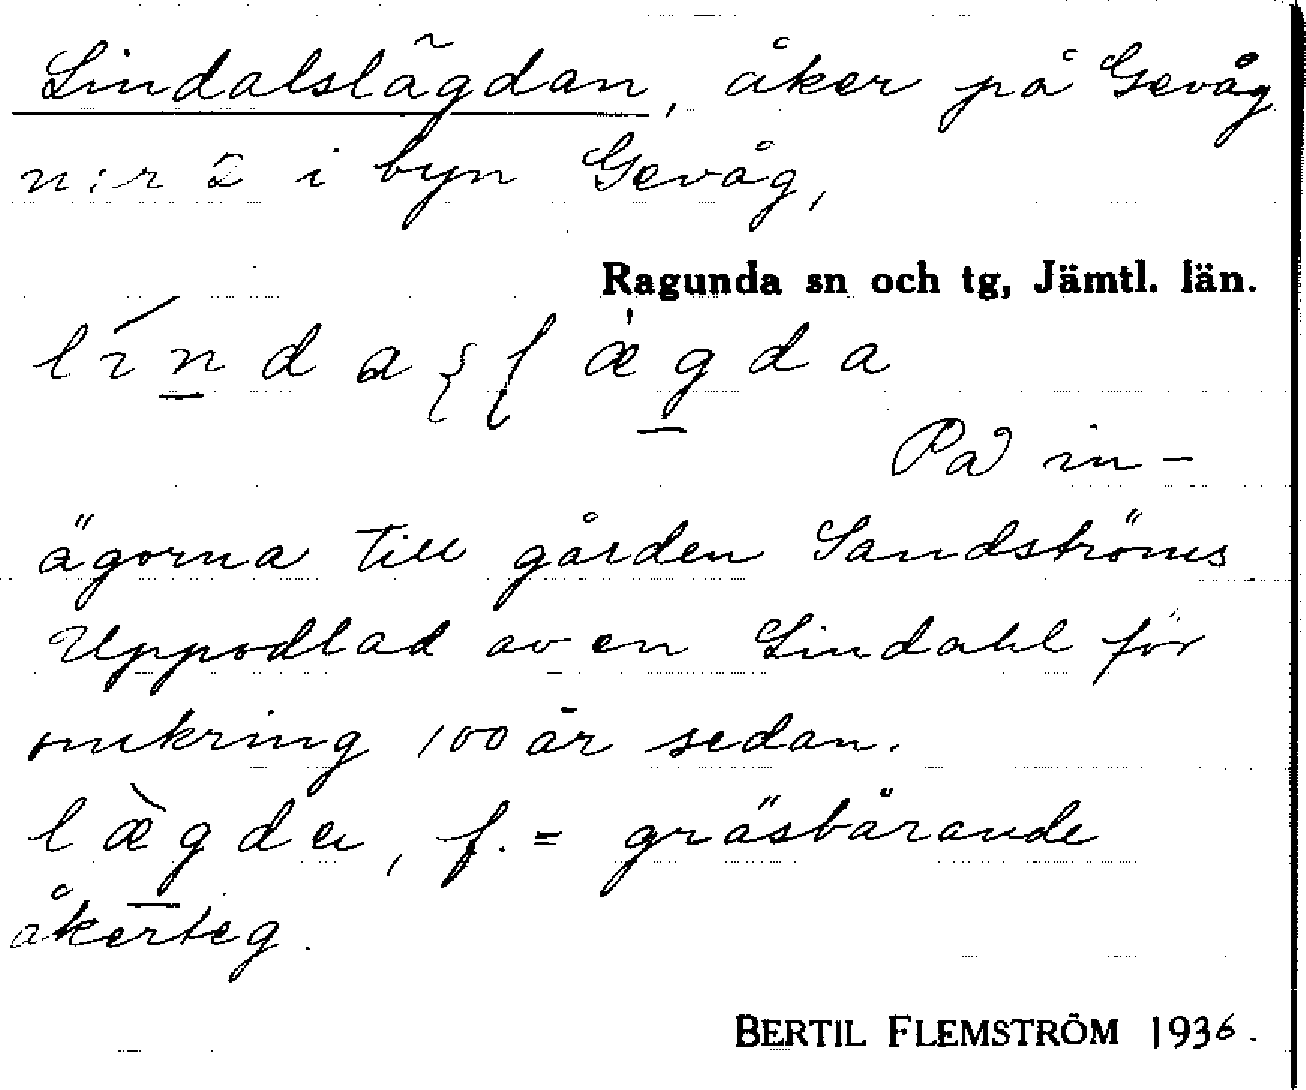 Lindalslägdan, åker på Gevåg
n:r 2 i byn Gevåg,
Ragunda sn och tg, Jämtl. län.
På in-
ägorna till gården Sandströms
Uppodlad av en Lindahl för
omkring 100 år sedan.
f. = gräsbärande
åkerteg.
BERTIL FLEMSTRÖM 1936.